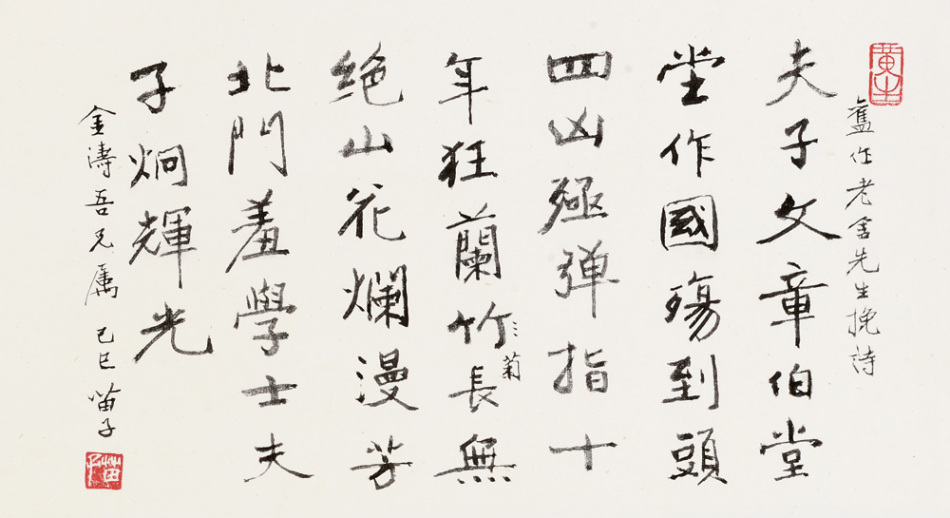 舊作老舍先生挽詩
夫子文章伯堂
堂作國殤到頭
四凶殛弹指十
年狂蘭竹菊長無
绝山花爛漫芳
北門羞學士夫
子炯輝光
金濤吾兄属 己巳 苗子
苗子